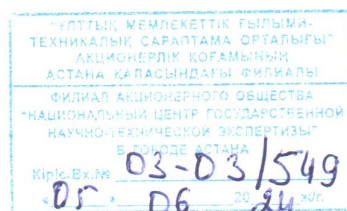 "ҰЛТТЫҚ МЕМЛЕКЕТТІК ҒЫЛЫМИ-
ТЕХНИКАЛЫҚ САРАПТАМА ОРТАЛЫҒЫ"
АКЦИОНЕРЛІК ҚОҒАМЫНЫҢ
АСТАНА ҚАЛАСЫНДАҒЫ ФИЛИАЛЫ
ФИЛИАЛ АКЦИОНЕРНОГО ОБЩЕСТВА
"НАЦИОНАЛЬНЫЙ ЦЕНТР ГОСУДАРСТВЕННОЙ
НАУЧНО-ТЕХНИЧЕСКОЙ ЭКСПЕРТИЗЫ"
В ГОРОДЕ АСТАНА
Кіріс.Вх.№ 03-03/549
«05» 06 20 24 ж/г.